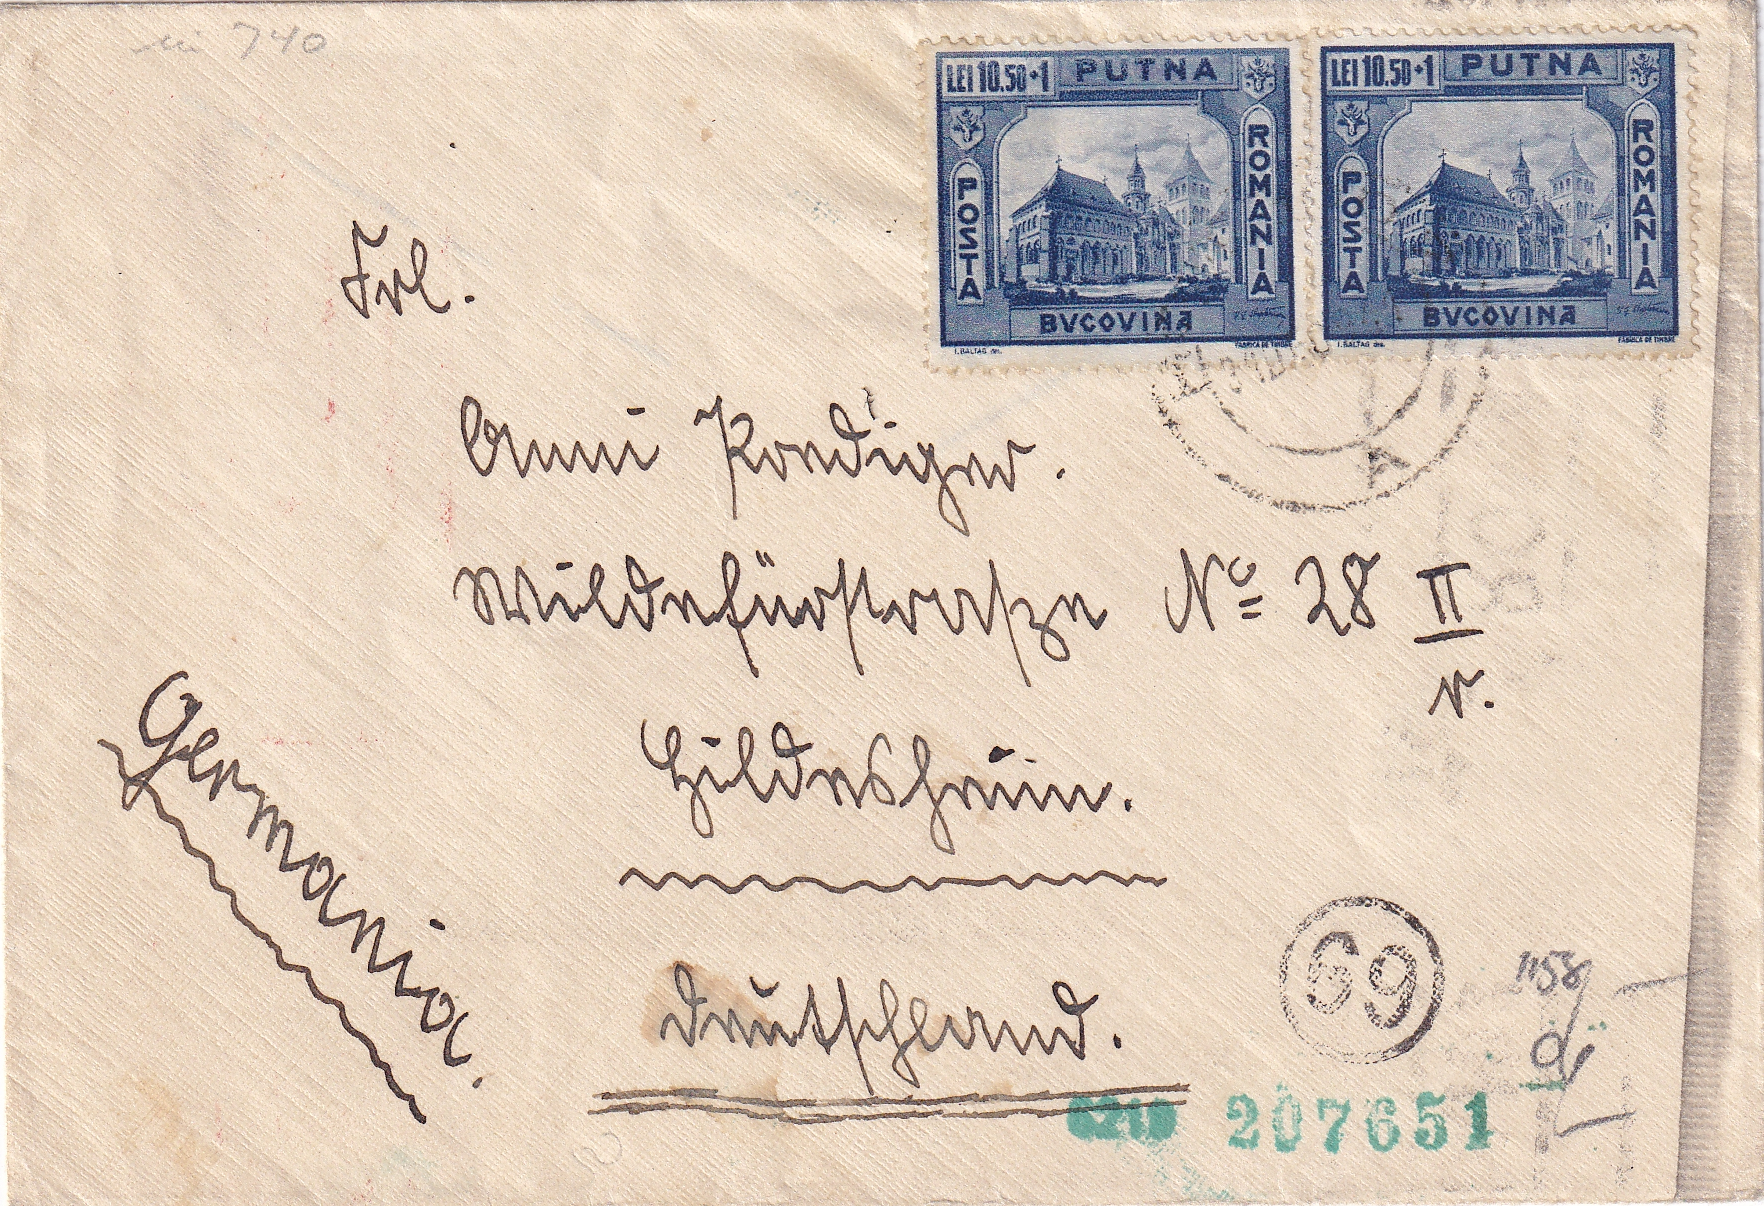 mi 740
LEI 10.50+1 PUTNA
POSTA
ROMANIA
BVCOVINA
I. BALTAG des. FABRICA DE TIMBRE
LEI 10.50+1 PUTNA
POSTA
ROMANIA
BVCOVINA
I. BALTAG des. FABRICA DE TIMBRE
A
Frl.
Anni Roediger.
Wildefürstrasze Nº 28 II
r.
Hildesheim.
Germania.
Deutschland.
69
1158
207651